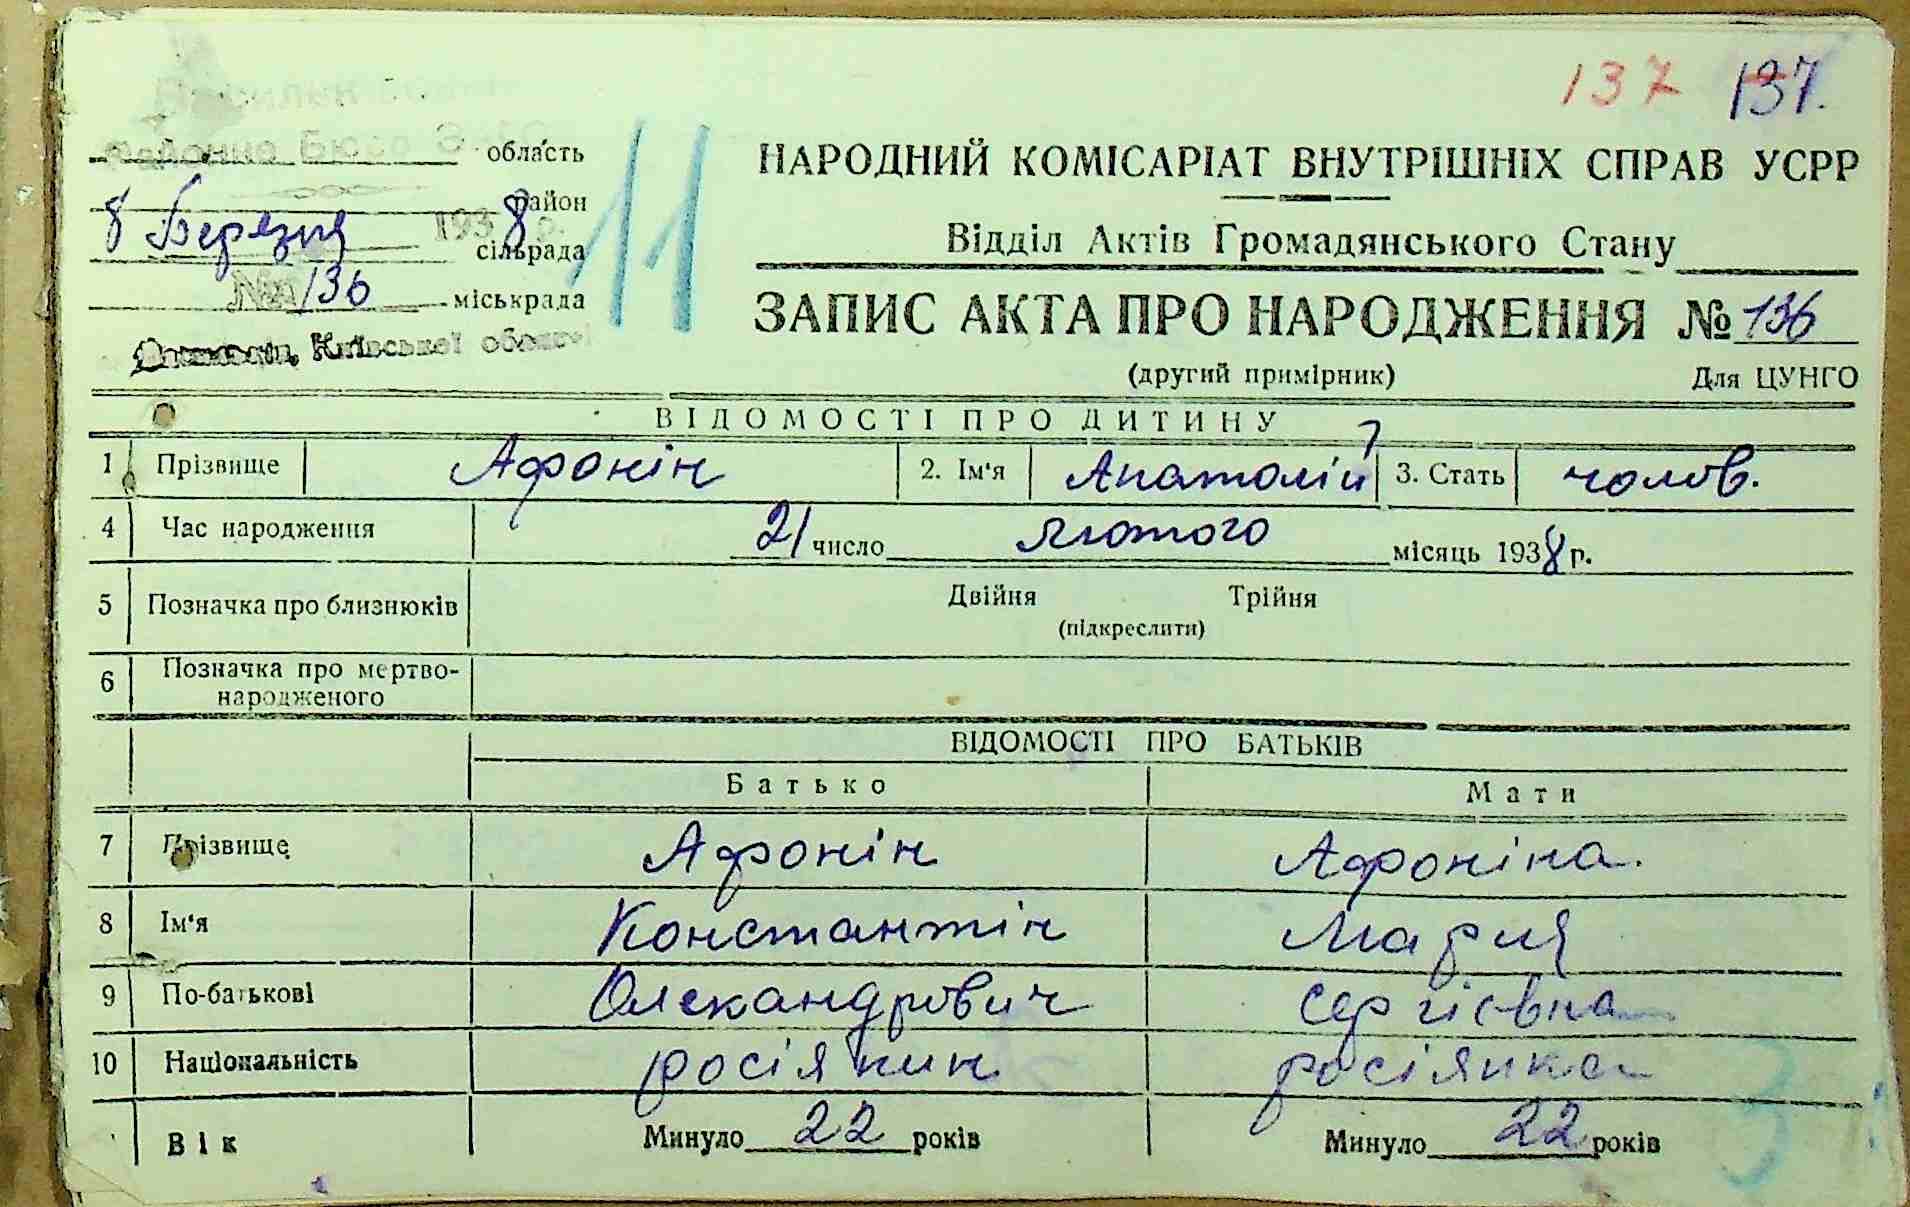 137 137.
область
Районне Бюро
район
8 Березня 1938 р.
сільрада
№ 136
міськрада
Київської області
11
НАРОДНИЙ КОМІСАРІАТ ВНУТРІШНІХ СПРАВ УСРР
Відділ Актів Громадянського Стану
ЗАПИС АКТА ПРО НАРОДЖЕННЯ № 136
(другий примірник) Для ЦУНГО
ВІДОМОСТІ ПРО ДИТИНУ
1 Прізвище Афонін 2. Ім'я Анатолій 3. Стать чолов.
4 Час народження 21 число лютого місяць 1938 р.
5 Позначка про близнюків Двійня Трійня
(підкреслити)
6 Позначка про мертво-
народженого
ВІДОМОСТІ ПРО БАТЬКІВ
Батько Мати
7 Прізвище Афонін Афоніна.
8 Ім'я Константін Мария
9 По-батькові Олександрович Сергієвна
10 Національність росіянин росіянка
Вік Минуло 22 років Минуло 22 років